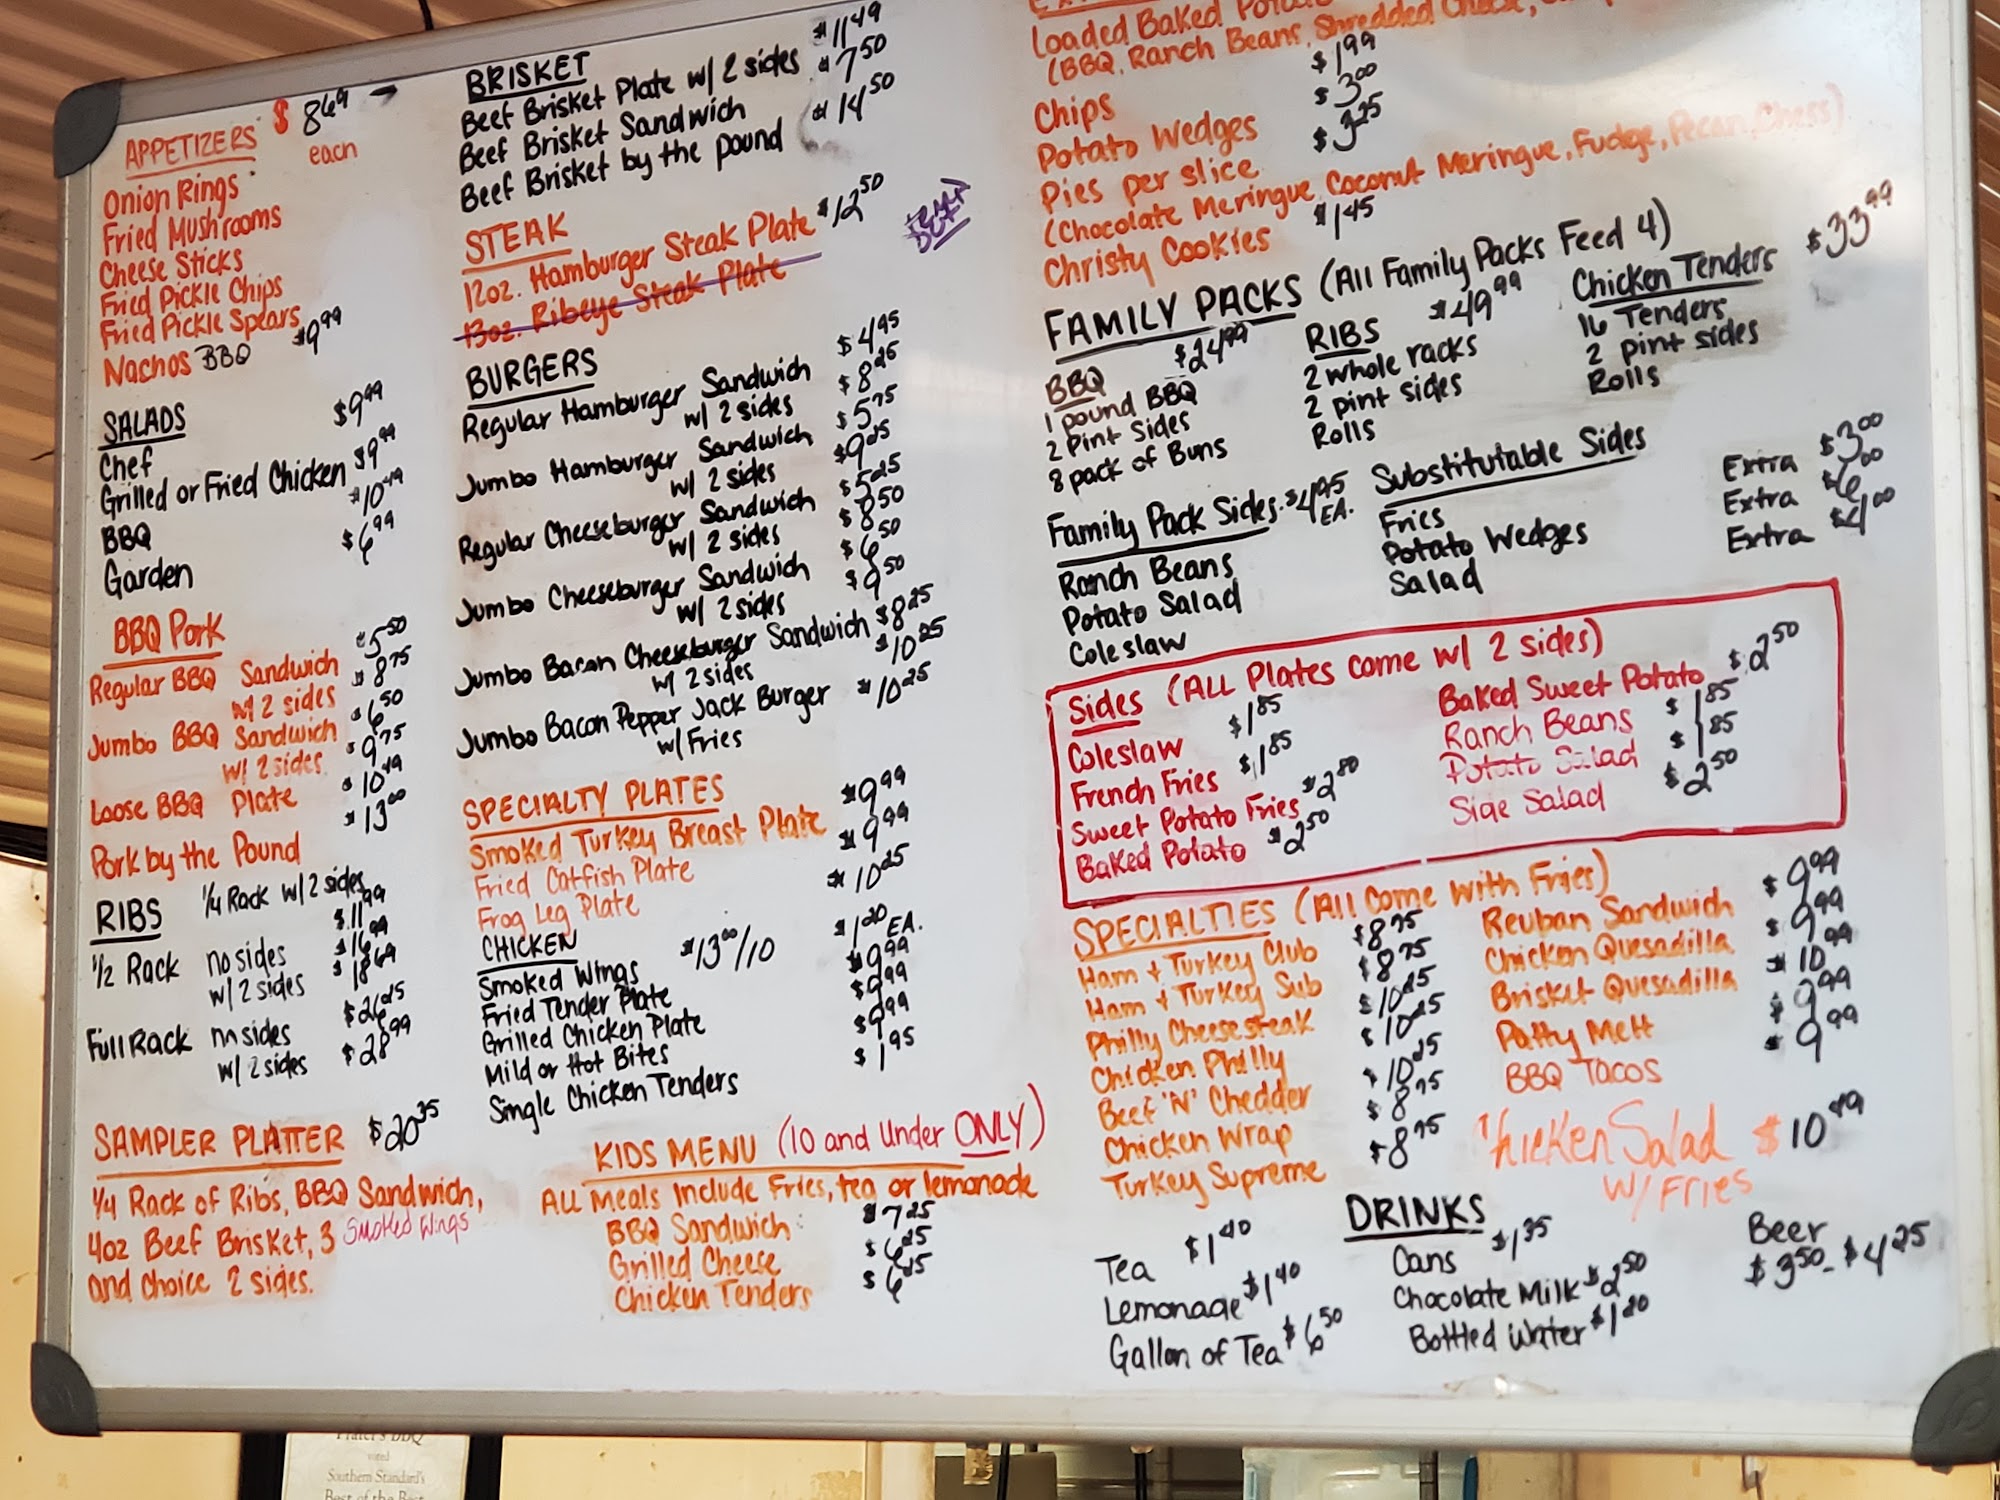 APPETIZERS $8.69 each
Onion Rings
Fried Mushrooms
Cheese Sticks
Fried Pickle Chips
Fried Pickle Spears
Nachos BBQ $9.99
SALADS
Chef $9.99
Grilled or Fried Chicken $9.99
BBQ $10.49
Garden $6.99
BBQ Pork
Regular BBQ Sandwich $5.50
w/ 2 sides $8.75
Jumbo BBQ Sandwich $6.50
w/ 2 sides $9.75
Loose BBQ Plate $10.49
Pork by the Pound $13.00
RIBS 1/4 Rack w/ 2 sides $11.99
1/2 Rack no sides $16.99
w/ 2 sides $18.69
Full Rack no sides $26.25
w/ 2 sides $28.99
SAMPLER PLATTER $20.35
1/4 Rack of Ribs, BBQ Sandwich,
4oz Beef Brisket, 3 Smoked Wings
and choice 2 sides.
BRISKET
Beef Brisket Plate w/ 2 sides $11.49
Beef Brisket Sandwich $7.50
Beef Brisket by the pound $14.50
STEAK
12oz. Hamburger Steak Plate $12.50
13oz. Ribeye Steak Plate
BURGERS
Regular Hamburger Sandwich $4.95
w/ 2 sides $8.25
Jumbo Hamburger Sandwich $5.75
w/ 2 sides $9.25
Regular Cheeseburger Sandwich $5.25
w/ 2 sides $8.50
Jumbo Cheeseburger Sandwich $6.50
w/ 2 sides $9.50
Jumbo Bacon Cheeseburger Sandwich $8.25
w/ 2 sides $10.25
Jumbo Bacon Pepper Jack Burger $10.25
w/ Fries
SPECIALTY PLATES
Smoked Turkey Breast Plate $9.99
Fried Catfish Plate $9.99
Frog Leg Plate $10.25
CHICKEN
Smoked Wings $13.00/10 $1.20 EA.
Fried Tender Plate $9.99
Grilled Chicken Plate $9.99
Mild or Hot Bites $9.99
Single Chicken Tenders $1.95
KIDS MENU (10 and Under ONLY)
All Meals Include Fries, tea or lemonade
BBQ Sandwich $7.25
Grilled Cheese $6.25
Chicken Tenders $6.25
Loaded Baked
(BBQ, Ranch Beans, Shredded
Chips $1.99
Potato Wedges $3.00
Pies per slice $3.25
(Chocolate Meringue, Coconut Meringue, Fudge, Pecan, Chess)
Christy Cookies $1.45
FAMILY PACKS (All Family Packs Feed 4)
BBQ $24.99
1 pound BBQ
2 Pint Sides
8 pack of Buns
RIBS $49.99
2 whole racks
2 pint sides
Rolls
Chicken Tenders $33.99
16 Tenders
2 pint sides
Rolls
Family Pack Sides $4.95 EA.
Ranch Beans
Potato Salad
Coleslaw
Substitutable Sides
Fries Extra $3.00
Potato Wedges Extra $6.00
Salad Extra $4.00
Sides (ALL Plates come w/ 2 sides)
Coleslaw $1.85
French Fries $1.85
Sweet Potato Fries $2.80
Baked Potato $2.50
Baked Sweet Potato $2.50
Ranch Beans $1.85
Potato Salad $1.85
Side Salad $2.50
SPECIALTIES (All Come with Fries)
Ham + Turkey Club $8.75
Ham + Turkey Sub $8.75
Philly Cheesesteak $10.25
Chicken Philly $10.25
Beef 'N' Chedder $10.25
Chicken Wrap $8.75
Turkey Supreme $8.75
Reuban Sandwich $9.99
Chicken Quesadilla $9.99
Brisket Quesadilla $10.99
Patty Melt $9.99
BBQ Tacos $9.99
Chicken Salad $10.49
W/ Fries
DRINKS
Tea $1.40
Lemonade $1.40
Gallon of Tea $6.50
Cans $1.35
Chocolate Milk $2.50
Bottled Water $1.20
Beer
$3.50 - $4.25
voted
Southern Standard's
Best of the Best